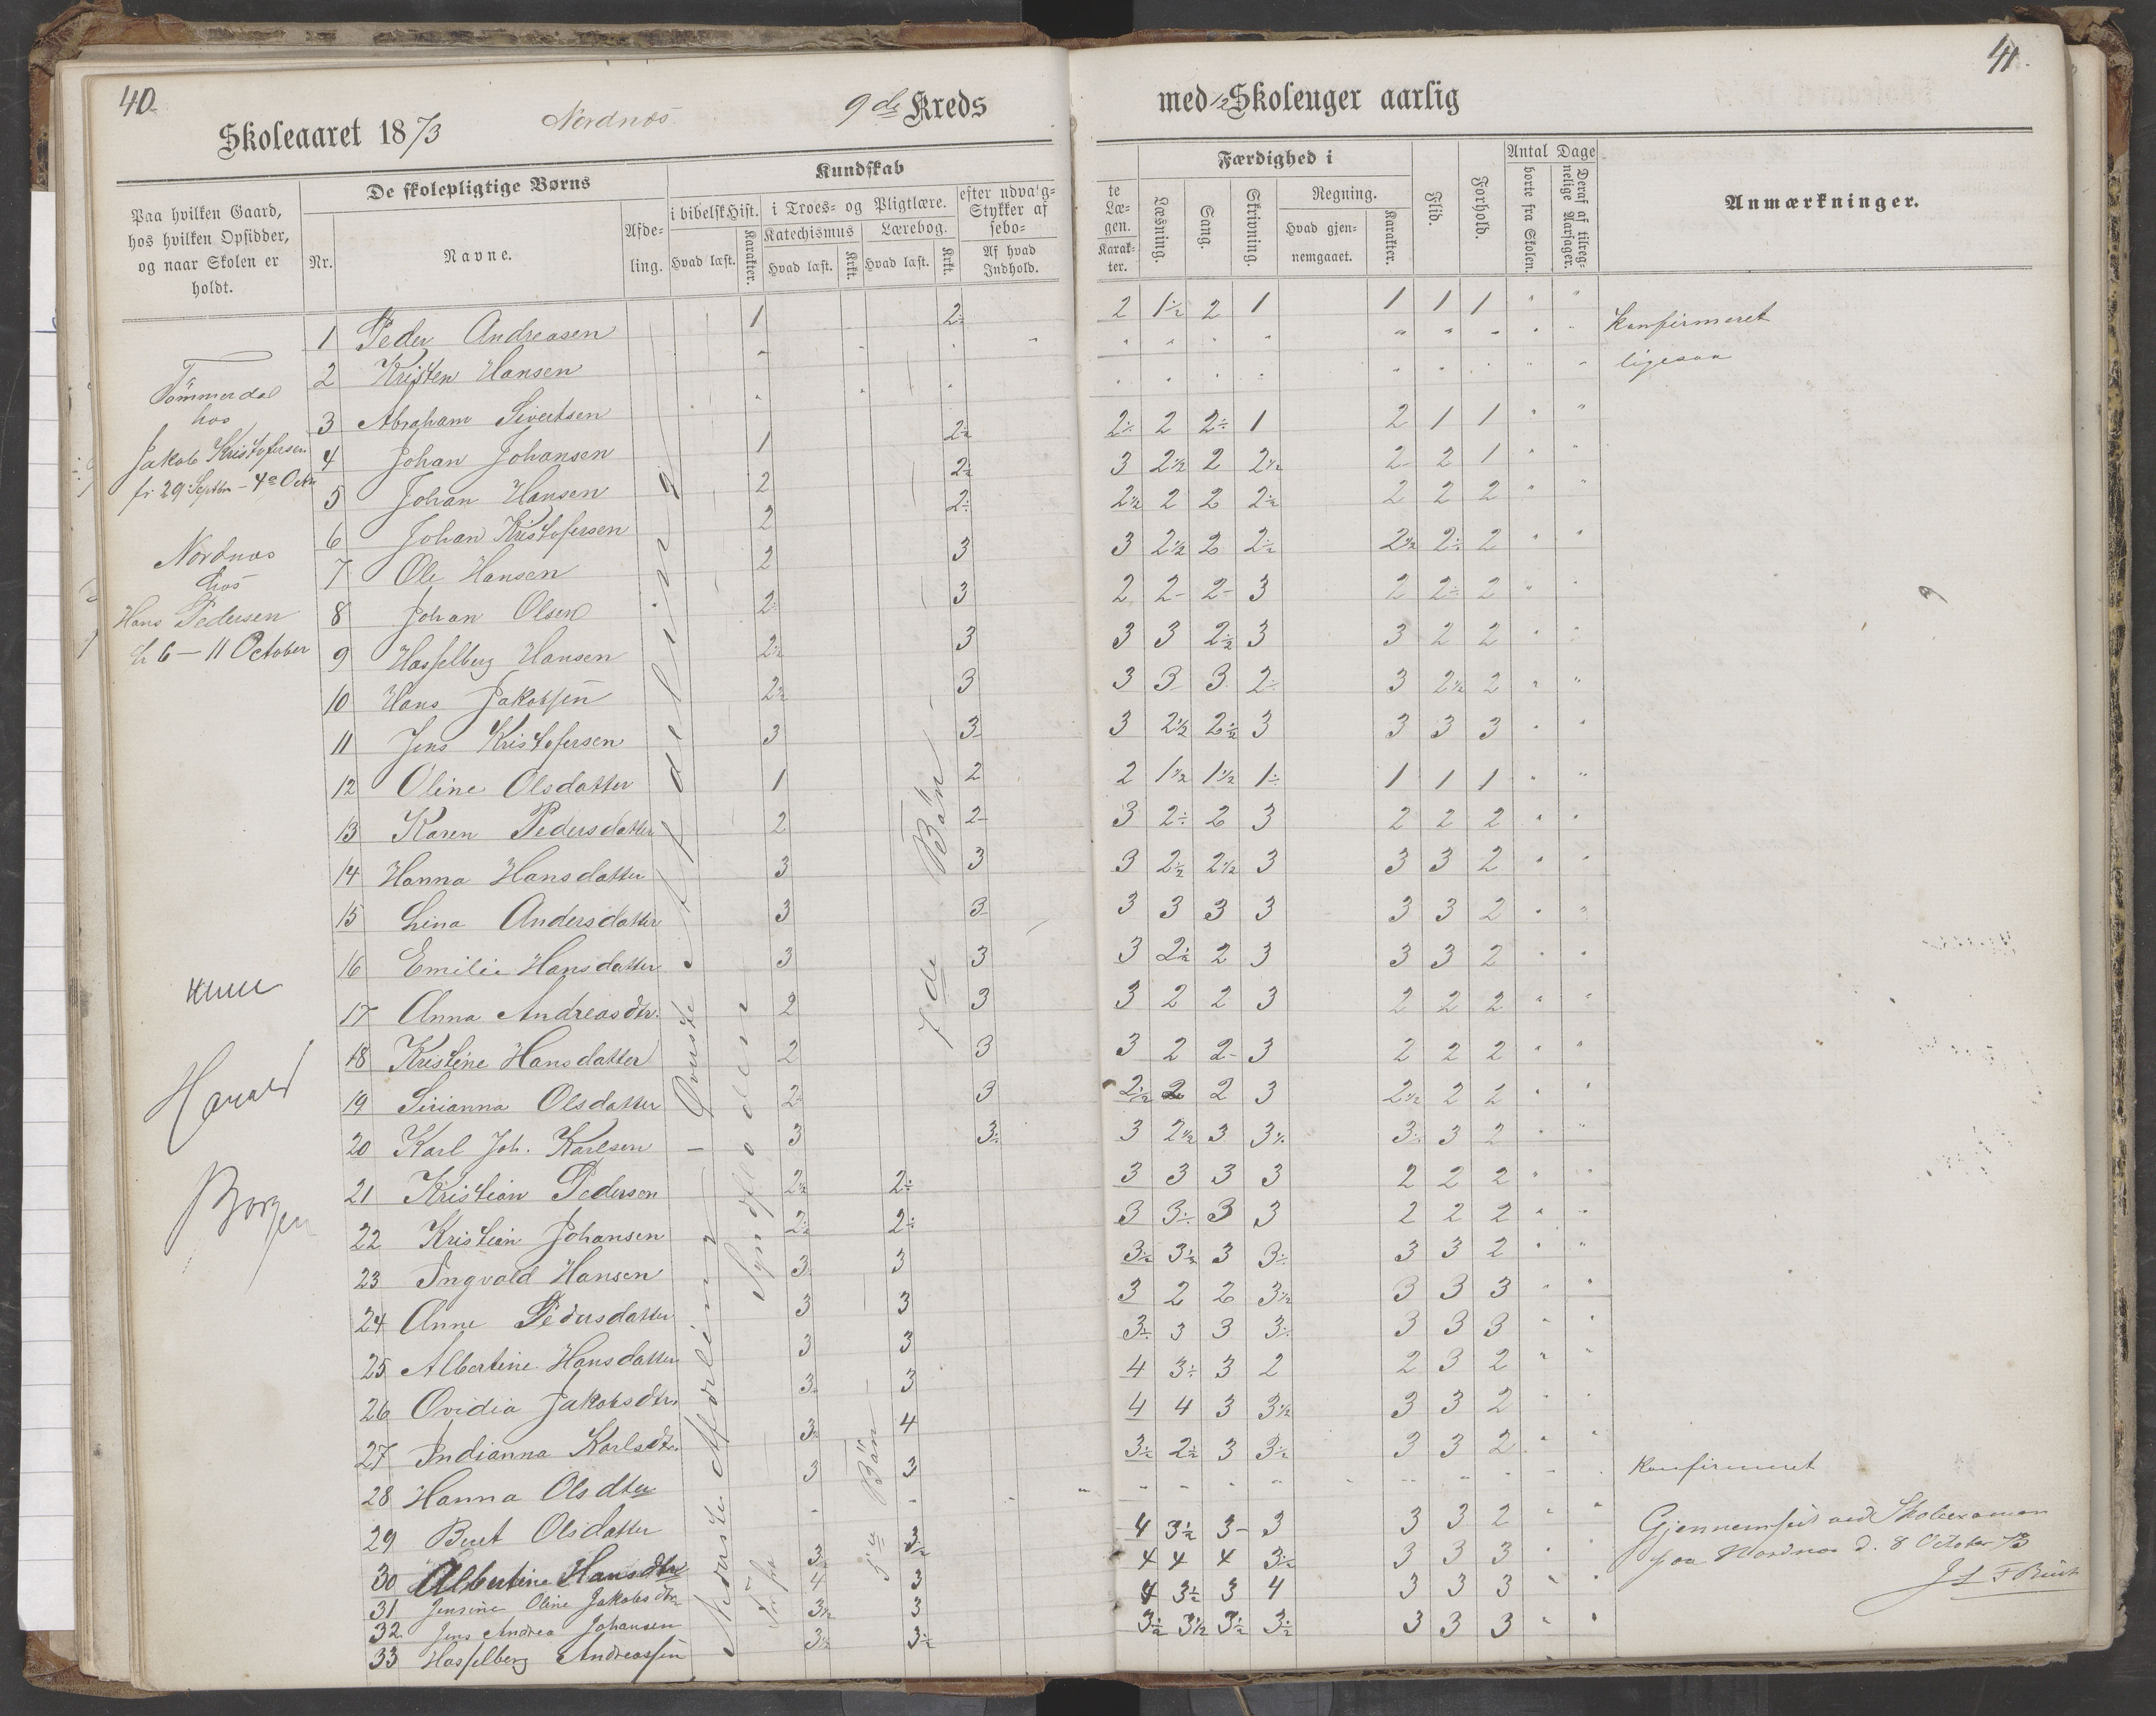 40.
Skoleaaret 1873 Nordnæs 9de Kreds
Paa hvilken Gaard,
hos hvilken Opsidder,
og naar Skolen er
holdt.
De skolepligtige Børns
Nr.
Navne.
Afde-
ling.
Kundskab
i bibelsk Hist.
Hvad læst.
Karakter.
i Troes- og Pligtlære.
Katechismus
Hvad læst.
Krkt.
Lærebog.
Hvad læst.
Krkt.
efter udvalg-
Stykker af
sebo-
Af hvad
Indhold.
Tømmerdal
hos
Jakob Kristofersen
fr 29 Septbr - 4de Octbr
Nordnæs
hos
Hans Pedersen
fr 6 - 11 October
Harald
Borgen
Øverste Afdeling
Nederste Afdeling
Syndfloden
7de Bøn
5te Bøn
1 Peder Andreasen 1 2÷
2 Kristen Hansen
3 Abraham Sivertsen
4 Johan Johansen 1 2½
5 Johan Hansen 2 2½
6 Johan Kristofersen 2 2÷
7 Ole Hansen 2 3
8 Johan Olsen 2÷ 3
9 Hasselberg Hansen 2½ 3
10 Hans Jakobsen 2½ 3
11 Jens Kristofersen 3 3
12 Oline Olsdatter 1 2
13 Karen Pedersdatter 2 2
14 Hanna Hansdatter 3 3
15 Lina Andersdatter 3 3
16 Emilie Hansdatter 3 3
17 Anna Andreasdtr. 2 3
18 Kristine Hansdatter 2 3
19 Sirianna Olsdatter 2÷ 3
20 Karl Joh. Karlsen 3 3÷
21 Kristian Pedersen 2½ 2÷
22 Kristian Johansen 2÷ 2÷
23 Ingvald Hansen 3÷ 3
24 Anne Pedersdatter 3 3
25 Albertine Hansdatter 3 3
26 Ovidia Jakobsdtr. 3÷ 3
27 Indianna Karlsdtr. 3÷ 4
28 Hanna Olsdtr 3 3
29 Beret Olsdatter
30 Albertine Hansdtr 3½ 3½
31 Jensine Oline Jakobsdtr 4 3
32 Jens Andrea Johansen 3½ 3
33 Hasselberg Andreassen 3½ 3½
41.
med 12 Skoleuger aarlig
te
Læ-
gen.
Karak-
ter.
Færdighed i
Læsning.
Sang.
Skrivning.
Regning.
Hvad gjen-
nemgaaet.
Karakter.
Flid.
Forhold.
Antal Dage
borte fra Skolen.
Deraf af tilreg-
nelige Aarsager.
Anmærkninger.
2 1½ 2 1 1 1 1
Konfirmeret
ligesaa
2÷ 2 2÷ 1 2 1 1
3 2½ 2 2½ 2 2 1
2½ 2 2 2½ 2 2 2
3 2½ 2 2½ 2½ 2÷ 2
2 2 2 3 2 2÷ 2
3 3 2½ 3 3 2 2
3 3 3 2÷ 3 2½ 2
3 2½ 2½ 3 3 3 3
2 1½ 1½ 1÷ 1 1 1
3 2÷ 2 3 2 2 2
3 2½ 2½ 3 3 3 2
3 3 3 3 3 3 2
3 2½ 2 3 3 3 2
3 2 2 3 2 2 2
3 2 2 3 2 2 2
2½ 2 2 3 2½ 2 2
3 2½ 3 3½ 3÷ 3 2
3 3 3 3 2 2 2
3 3÷ 3 3 2 2 2
3½ 3½ 3 3÷ 3 3 2
3 2 2 3½ 3 3 3
3÷ 3 3 3÷ 3 3 3
4 3÷ 3 2 2 3 2
4 4 3 3½ 3 3 2
3½ 2½ 3 3½ 3 3 2
Konfirmeret
4 3½ 3 3 3 3 2
4 4 4 3½ 3 3 3
4 3½ 3 4 3 3 3
3½ 3½ 3½ 3½ 3 3 3
Gjennemseet ved Skoleexamen
paa Nordnæs d. 8 October 73